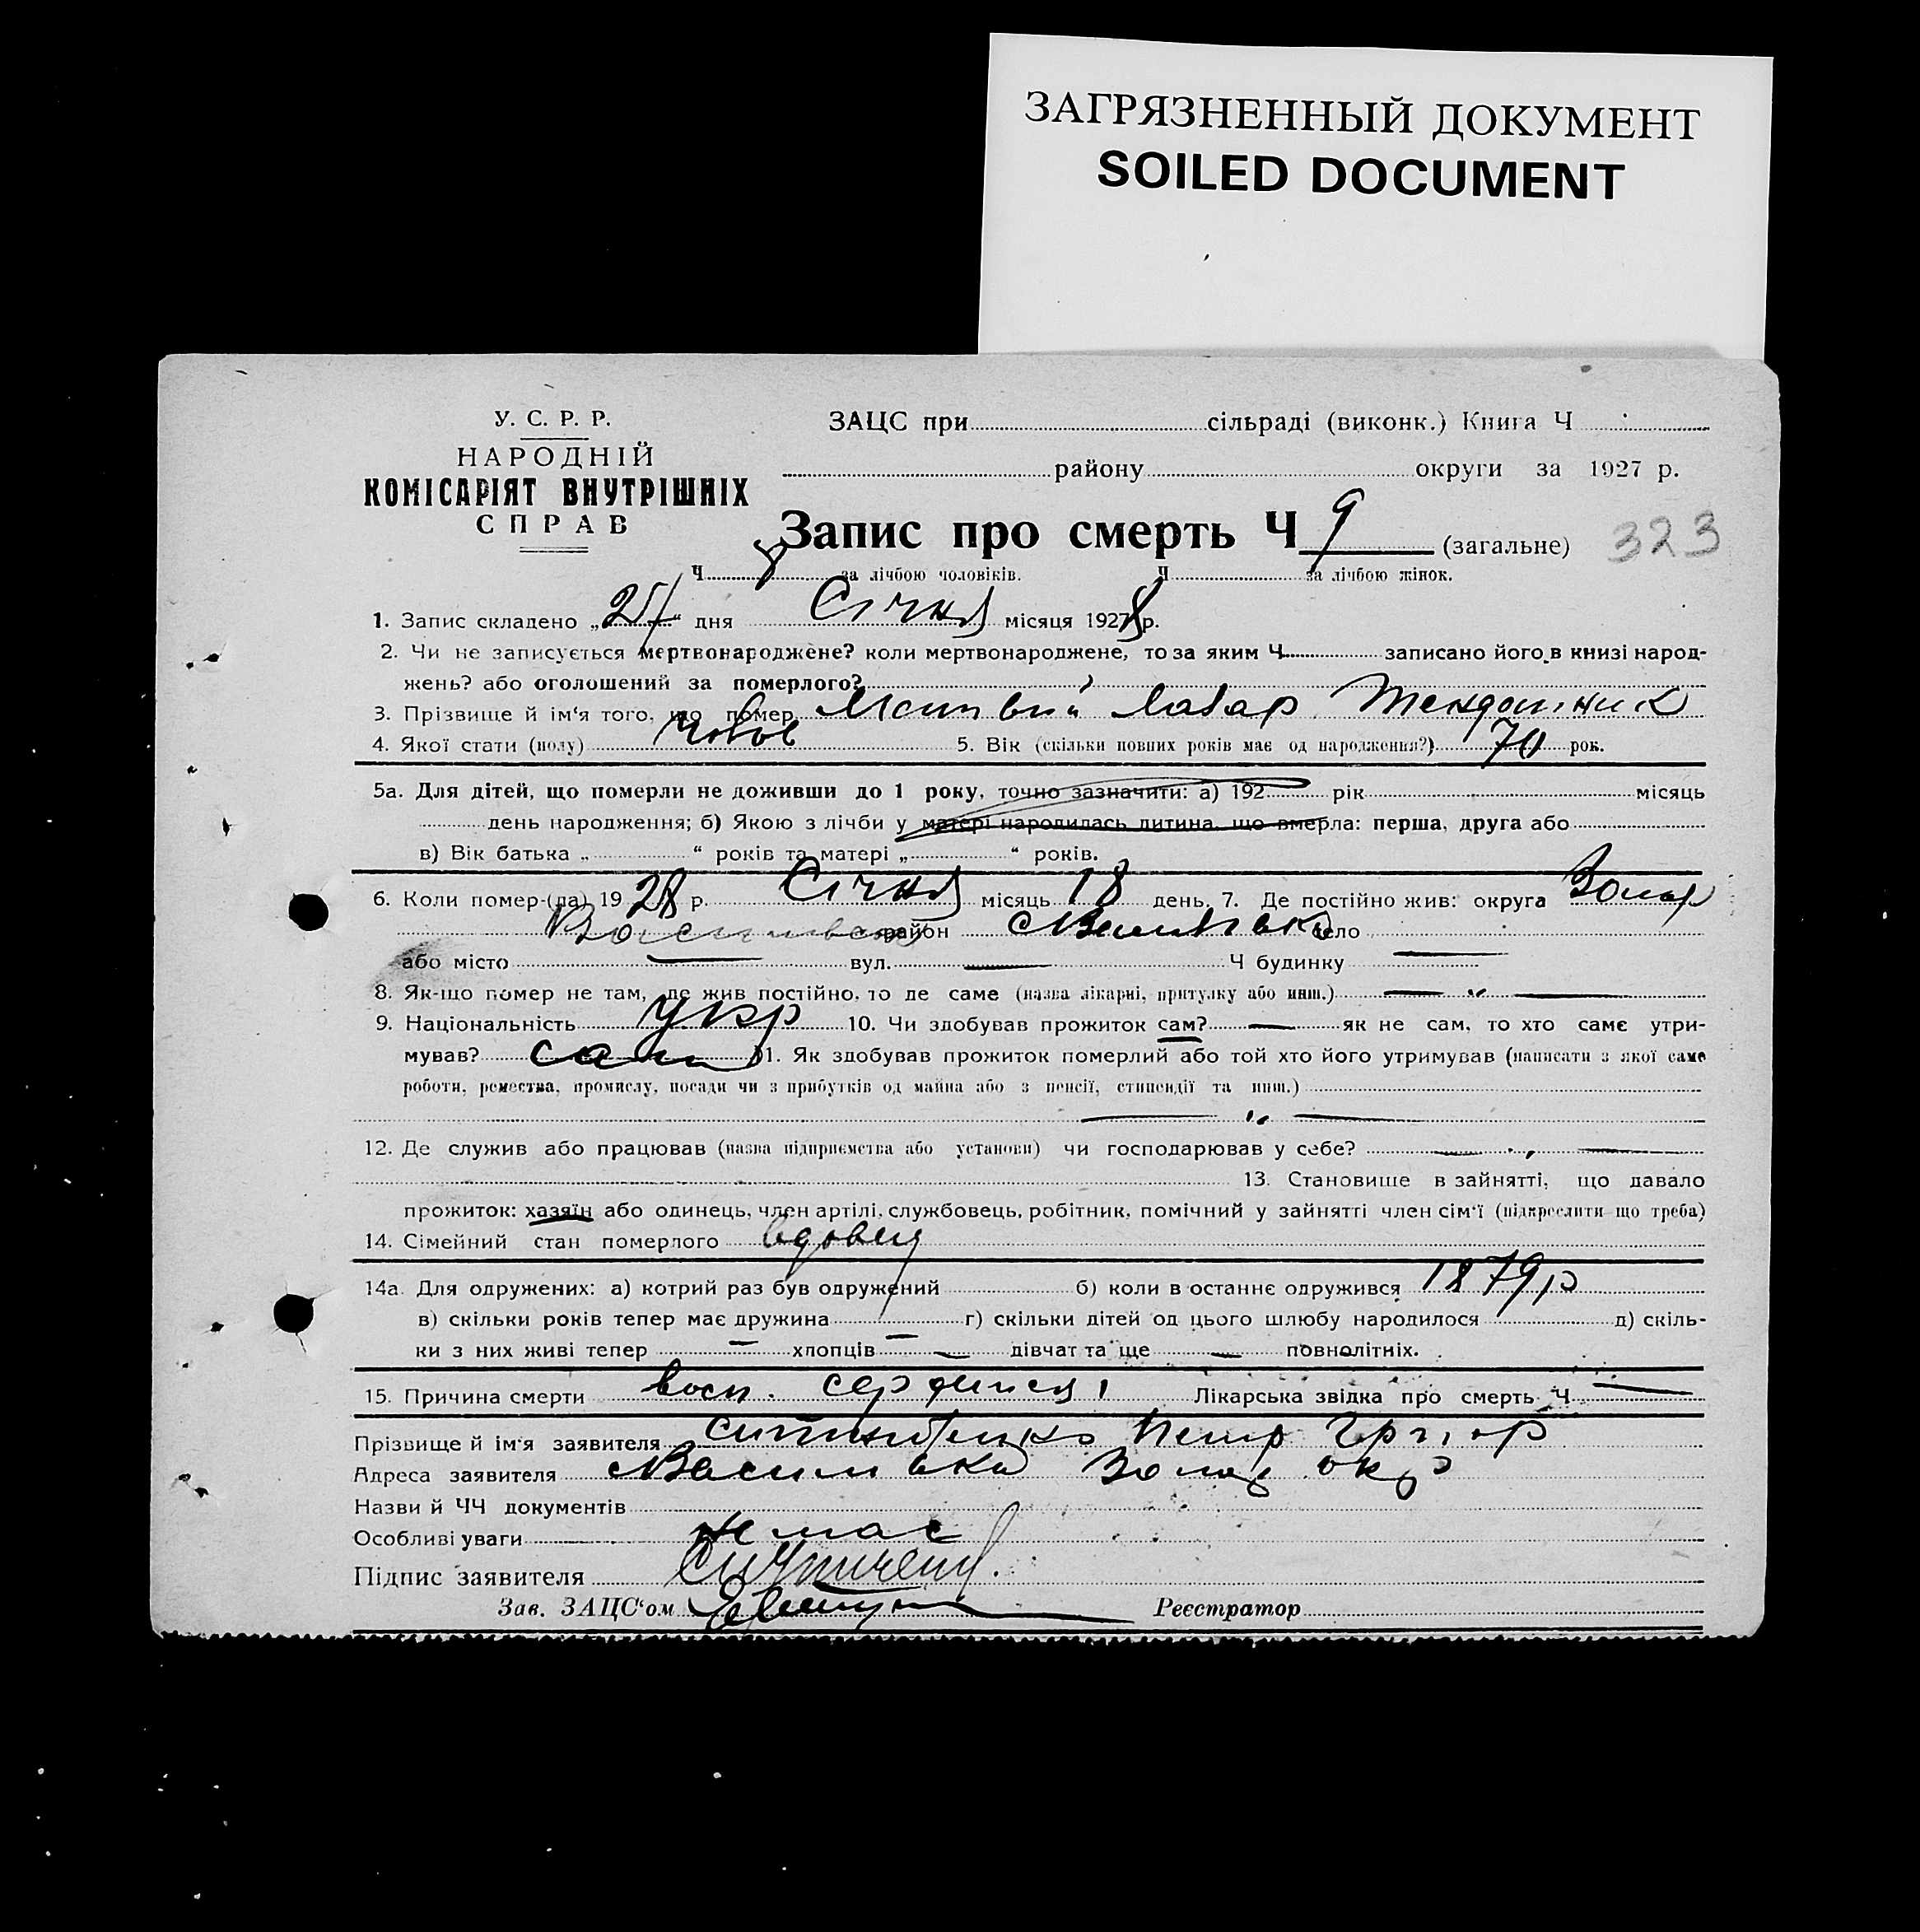 ЗАГРЯЗНЕННЫЙ ДОКУМЕНТ
SOILED DOCUMENT
У. С. Р. Р.
НАРОДНІЙ
КОМІСАРІЯТ ВНУТРІШНІХ
СПРАВ
ЗАЦС при сільраді (виконк.) Книга Ч
району округи за 1927 р.
Запис про смерть Ч 9 (загальне) 323
Ч 8 за лічбою чоловіків. Ч за лічбою жінок.
1. Запис складено „ “ дня Січня місяця 1928 р.
2. Чи не записується мертвонароджене? коли мертвонароджене, то за яким Ч записано його в книзі народ-
жень? або оголошений за померлого?
3. Прізвище й ім'я того, що помер Матвій Лазар
4. Якої стати (полу) 5. Вік (скільки повних років має од народження?) 70 рок.
5а. Для дітей, що померли не доживши до 1 року, точно зазначити: а) 192 рік місяць
день народження; б) Якою з лічби у матері народилась дитина, що вмерла: перша, друга або
в) Вік батька „ “ років та матері „ “ років.
6. Коли помер-(ла) 1928 р. Січня місяць 18 день. 7. Де постійно жив: округа
район село
або місто — вул. — Ч будинку —
8. Як-що помер не там, де жив постійно, то де саме (назва лікарні, притулку або инш.) — „ —
9. Національність укр 10. Чи здобував прожиток сам? — як не сам, то хто саме утри-
мував? сам 11. Як здобував прожиток померлий або той хто його утримував (написати з якої саме
роботи, ремества, промислу, посади чи з прибутків од майна або з пенсії, стипендії та инш.)
— „ —
12. Де служив або працював (назва підприємства або установи) чи господарював у себе? — „ —
13. Становище в зайнятті, що давало
прожиток: хазяїн або одинець, член артілі, службовець, робітник, помічний у зайнятті член сім'ї (підкреслити що треба)
14. Сімейний стан померлого вдовец
14а. Для одружених: а) котрий раз був одружений б) коли в останнє одружився 1879 р
в) скільки років тепер має дружина г) скільки дітей од цього шлюбу народилося д) скіль-
ки з них живі тепер — хлопців — дівчат та ще — повнолітніх.
15. Причина смерти восп. Лікарська звідка про смерть Ч —
Прізвище й ім'я заявителя Петр Григор
Адреса заявителя окр
Назви й ЧЧ документів
Особливі уваги немає
Підпис заявителя
Зав. ЗАЦС'ом Реєстратор